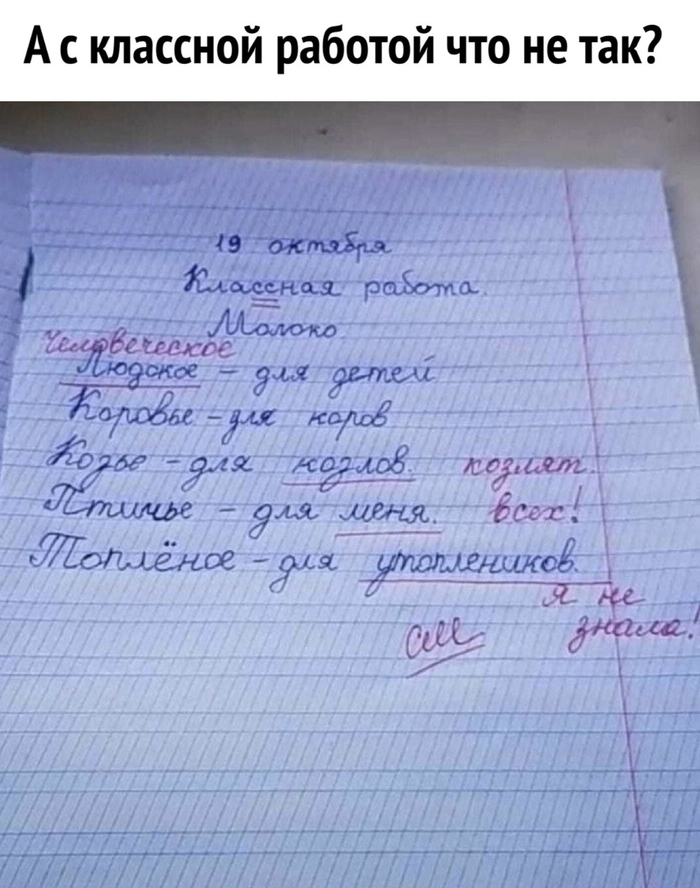 А с классной работой что не так?
19 октября
Классная работа.
Молоко
Человеческое
Людское – для детей
Коровье – для коров
Козье – для козлов. козлят.
Птичье – для меня. всех!
Топлёное – для утоплеников.
Я не
знала!
см